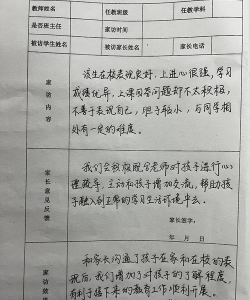 教师姓名 任教班级 任教学科
是否班主任 家访时间
被访学生姓名 被访家长姓名 家长电话
家访内容
该生在校表现良好，上进心很强，学习
成绩优异，上课回答问题都不太积极，
不善于表现自己，胆子较小，与同学相
处有一定的难度。
家长意见反馈
我们会积极配合老师对孩子进行心
理疏导，主动和孩子增加交流，帮助孩
子融入到正常的学习生活环境中去。
家长签字：
年 月 日
家访效
和家长沟通了孩子在家和在校的表
现后，我们增加了对孩子的了解程度，
有利于接下来的教育工作顺利开展。